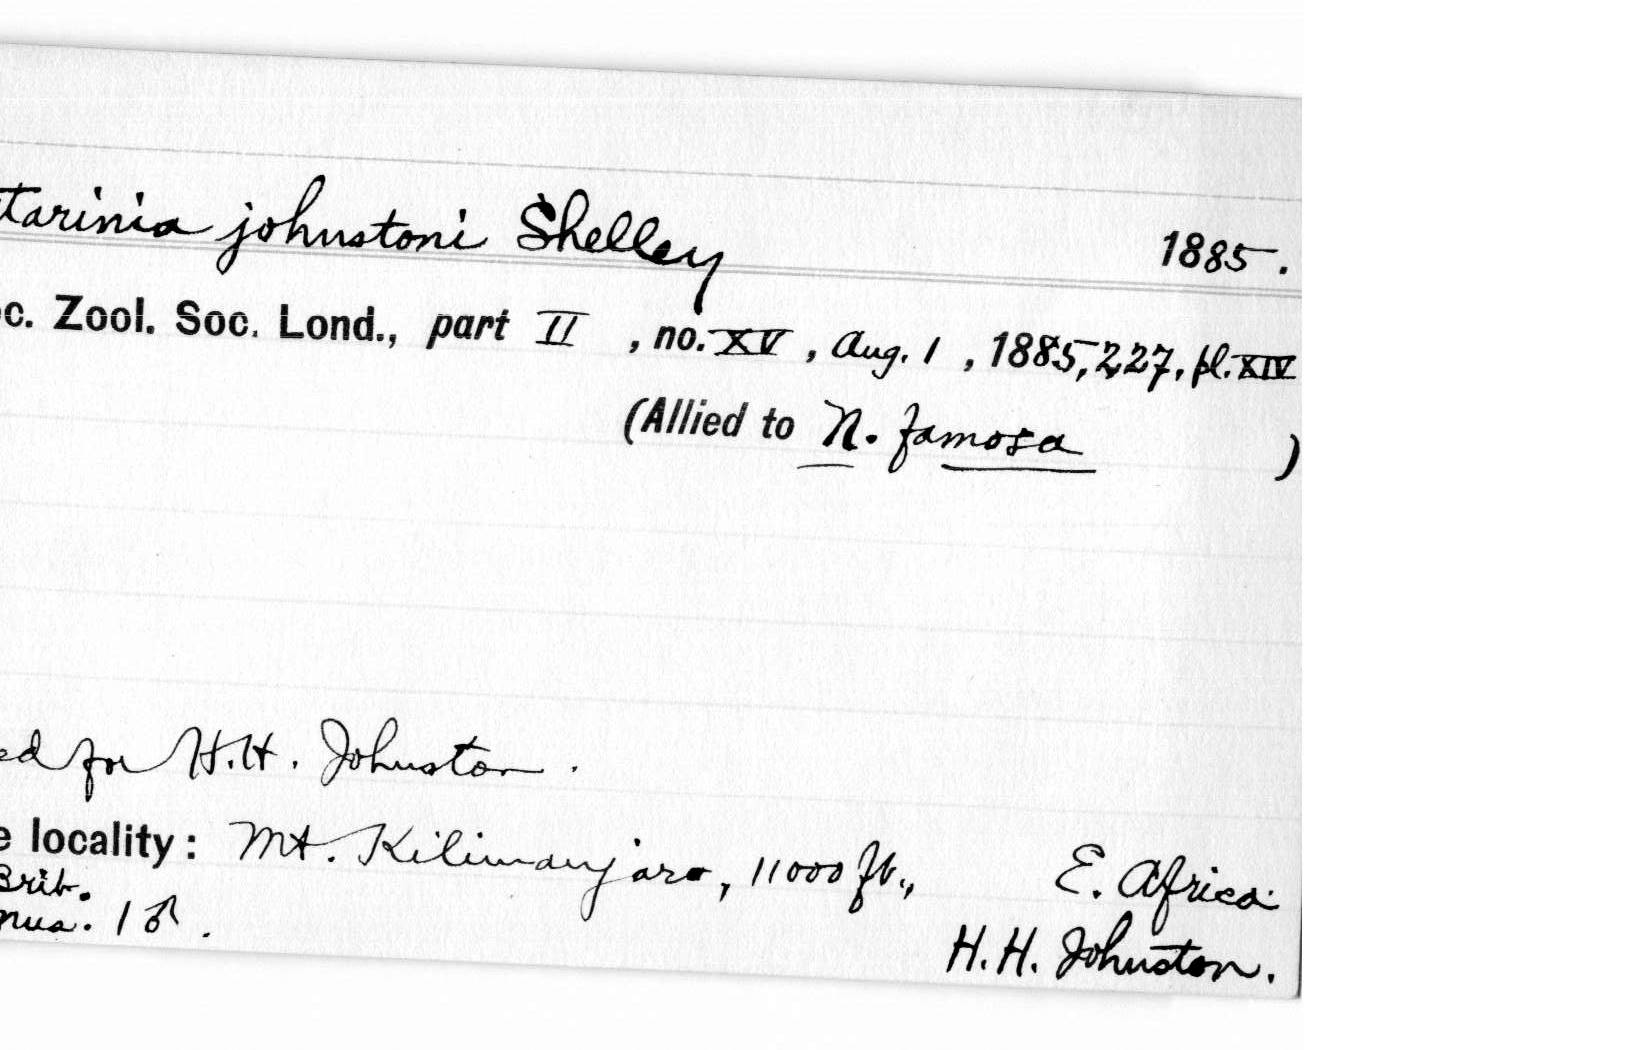 tarinia johnstoni Shelley 1885.
c. Zool. Soc. Lond., part II , no. XV , Aug. 1 , 1885, 227, pl. XIV
(Allied to N. famosa )
ed for H.H. Johnston.
e locality: Mt. Kilimanjaro, 11000 ft., E. Africa.
Brit.
Mus. 1♂. H.H. Johnston.